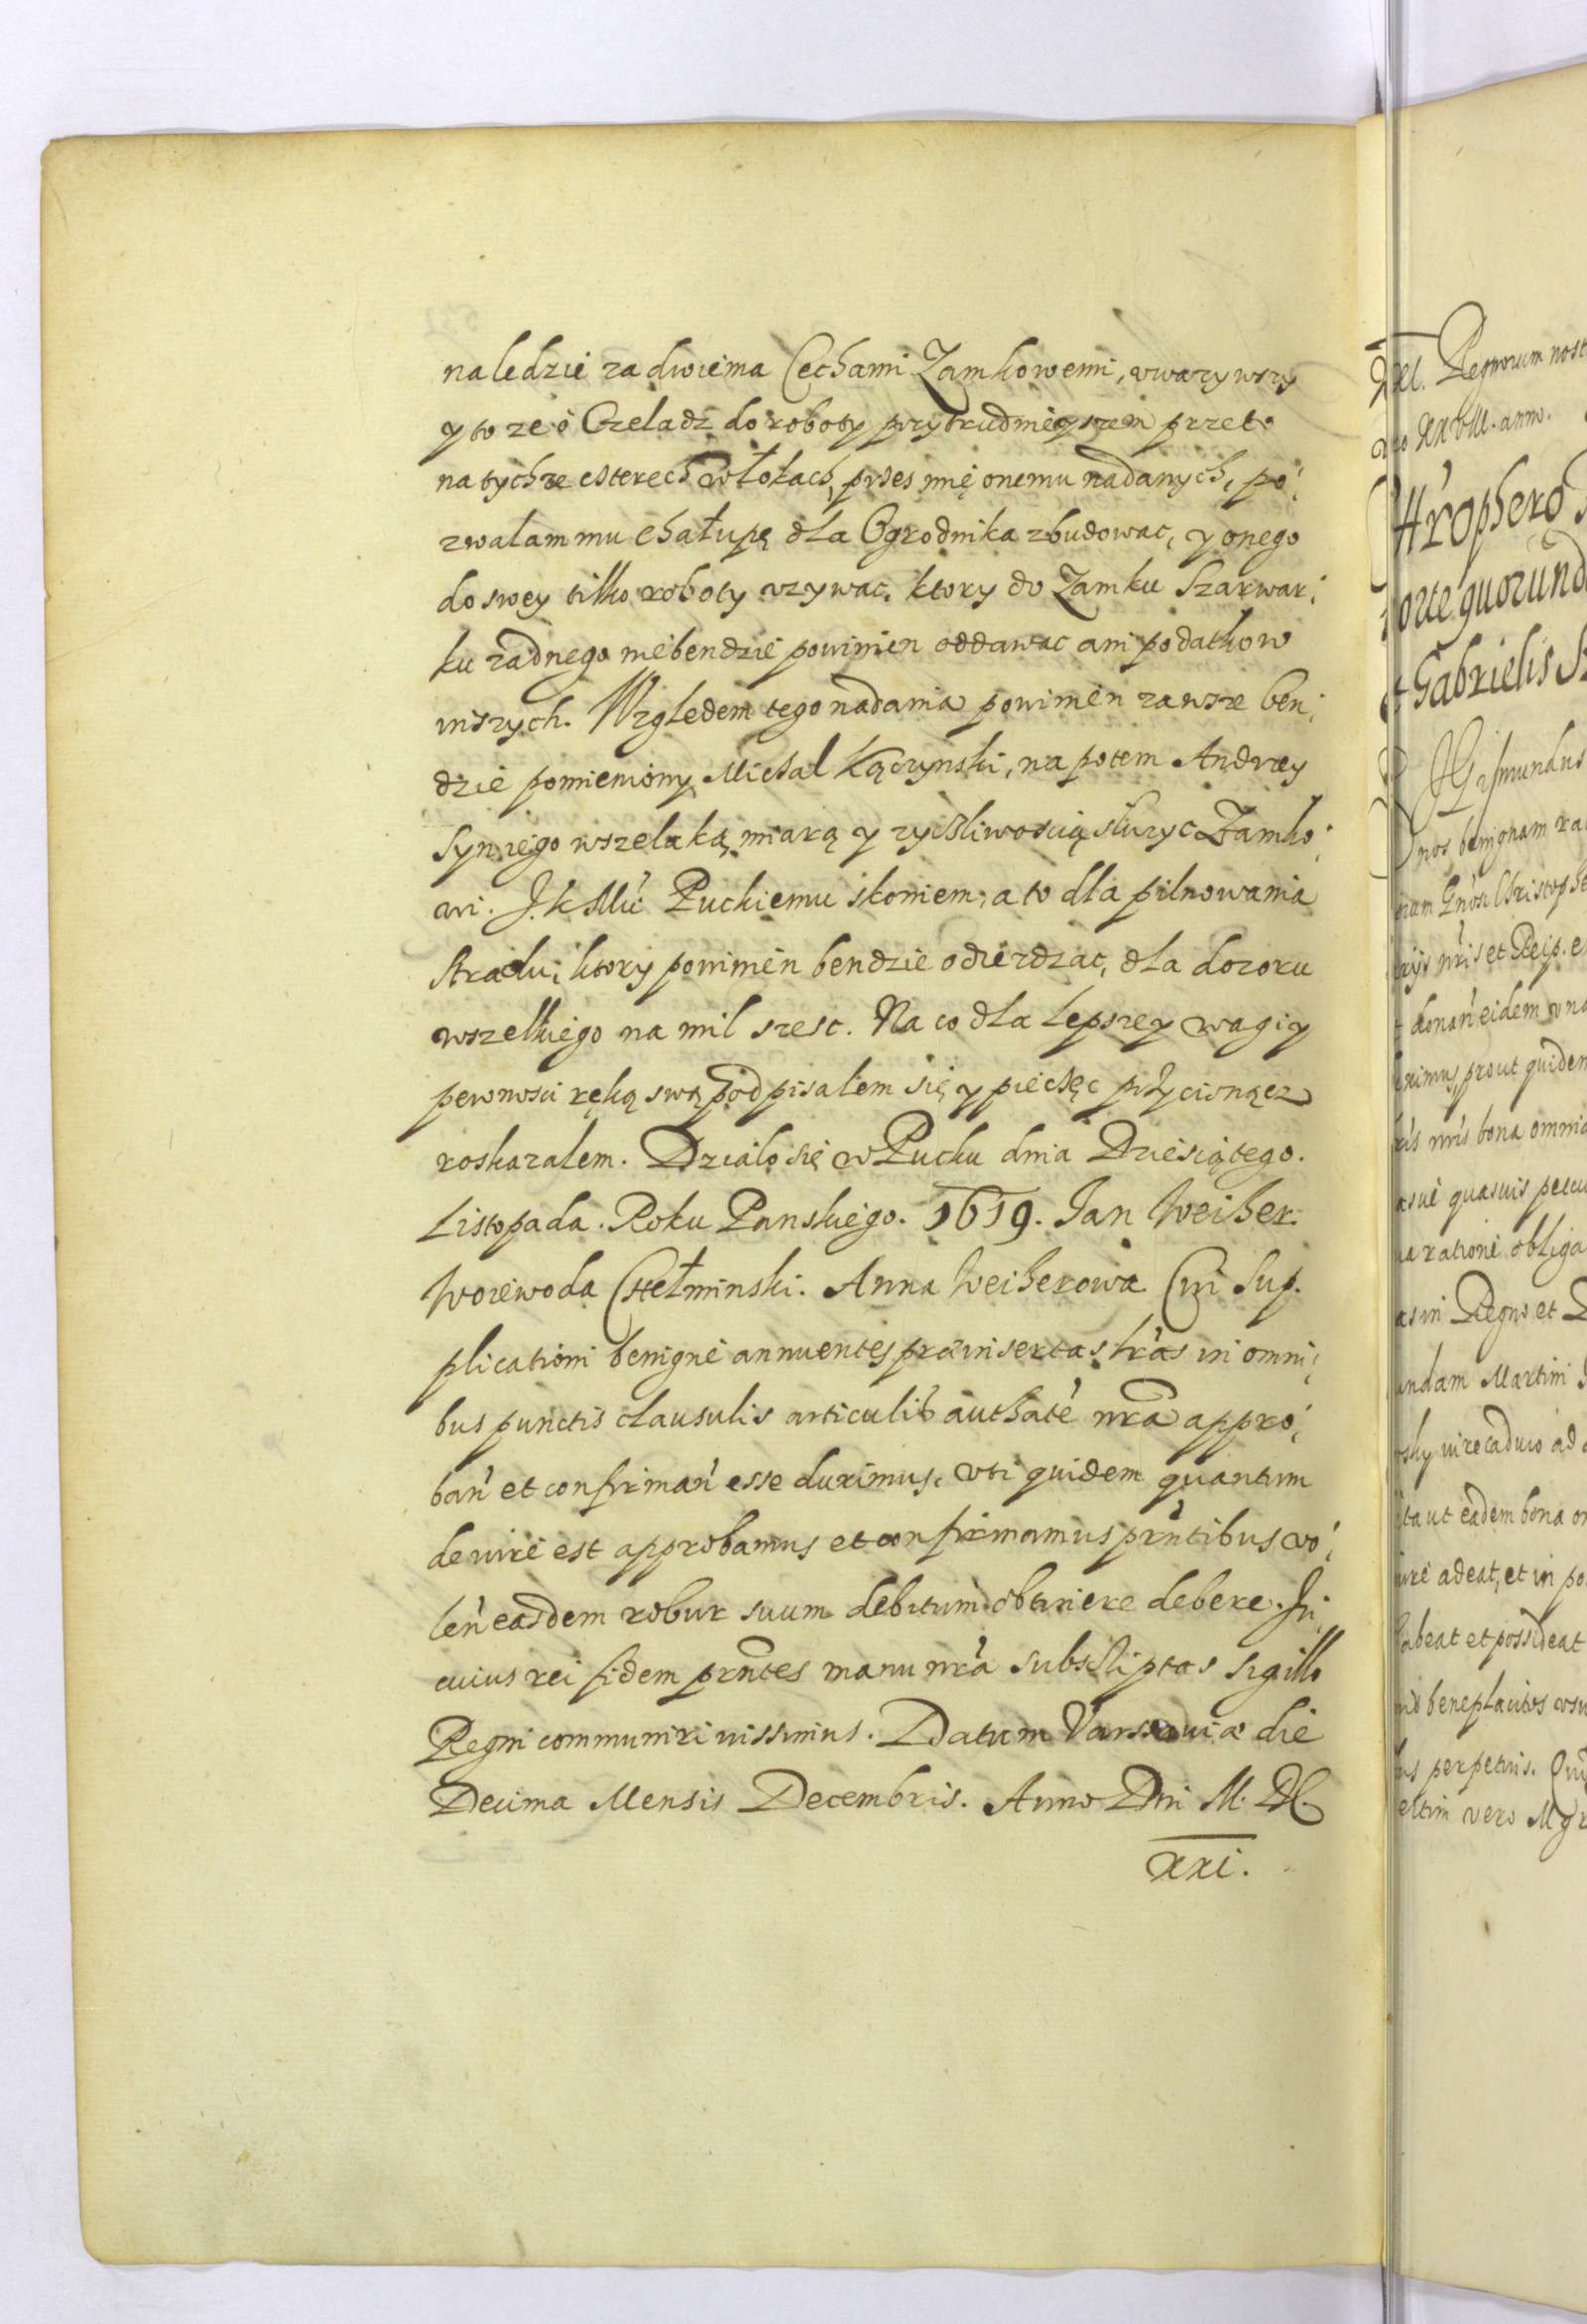 na ledzie za dwiema Cechami Zamkowemi, vwazywszy
y to ze o Czeladz do roboty przytrudnieyszem przeto
na tychze czterech włokach, przes mię onemu nadanych, po
zwalam mu chałupę dla Ogrodnika zbudowac, y onego
do swey tilko roboty vzywac, ktory do Zamku Szarwar
ku zadnego niebendzie powinien oddawac ani podatkow
inszych. Względem tego nadania powinien zawsze ben
dzie pomieniony Michal Kączynski, na potem Andrzey
Syn iego wszelaką miarą y zyczliwoscią sluzyc Zamko
wi. J. K Mci Puckiemu skoniem, a to dla pilnowania
Stradu, ktory powinien bendzie odiezdzac, dla dozoru
wszelkiego na mil szesc. Na co dla lepszey wagi y
pewnosci ręką swą podpisalem się y pieczęc przycisnącz
roskazalem. Dzialo się w Pucku dnia Dziesiątego.
Listopada. Roku Panskiego. 1619. Jan Weiher
Woiewoda Chełminski. Anna Weiherowa. Cui Sup
plicationi benigne annuentes præinsertas lrás in omni
bus punctis clausulis articulis authaté nrã appro
bań et confirmań esse duximus, vti quidem quantum
de iure est approbamus et confirmamus prńtibus vo
leń easdem robur suum debitum obtinere debere. In
cuius rei fidem prńtes manu nrá subscriptas sigillo
Regni communiri iussimus. Datum Varsauiæ die
Decima Mensis Decembris. Anno Dni M. DC.
xxi.
Regnorum nost
XXVIII. anno.
Gabrielis
nos benignam
donań eidem
prout quidem
nris bona omnia
quasuis
ratione obliga
in Regno et
Martini
ut eadem bona
adeat, et in po
et possideat
beneplacitos vsu
perpetuis.
vero